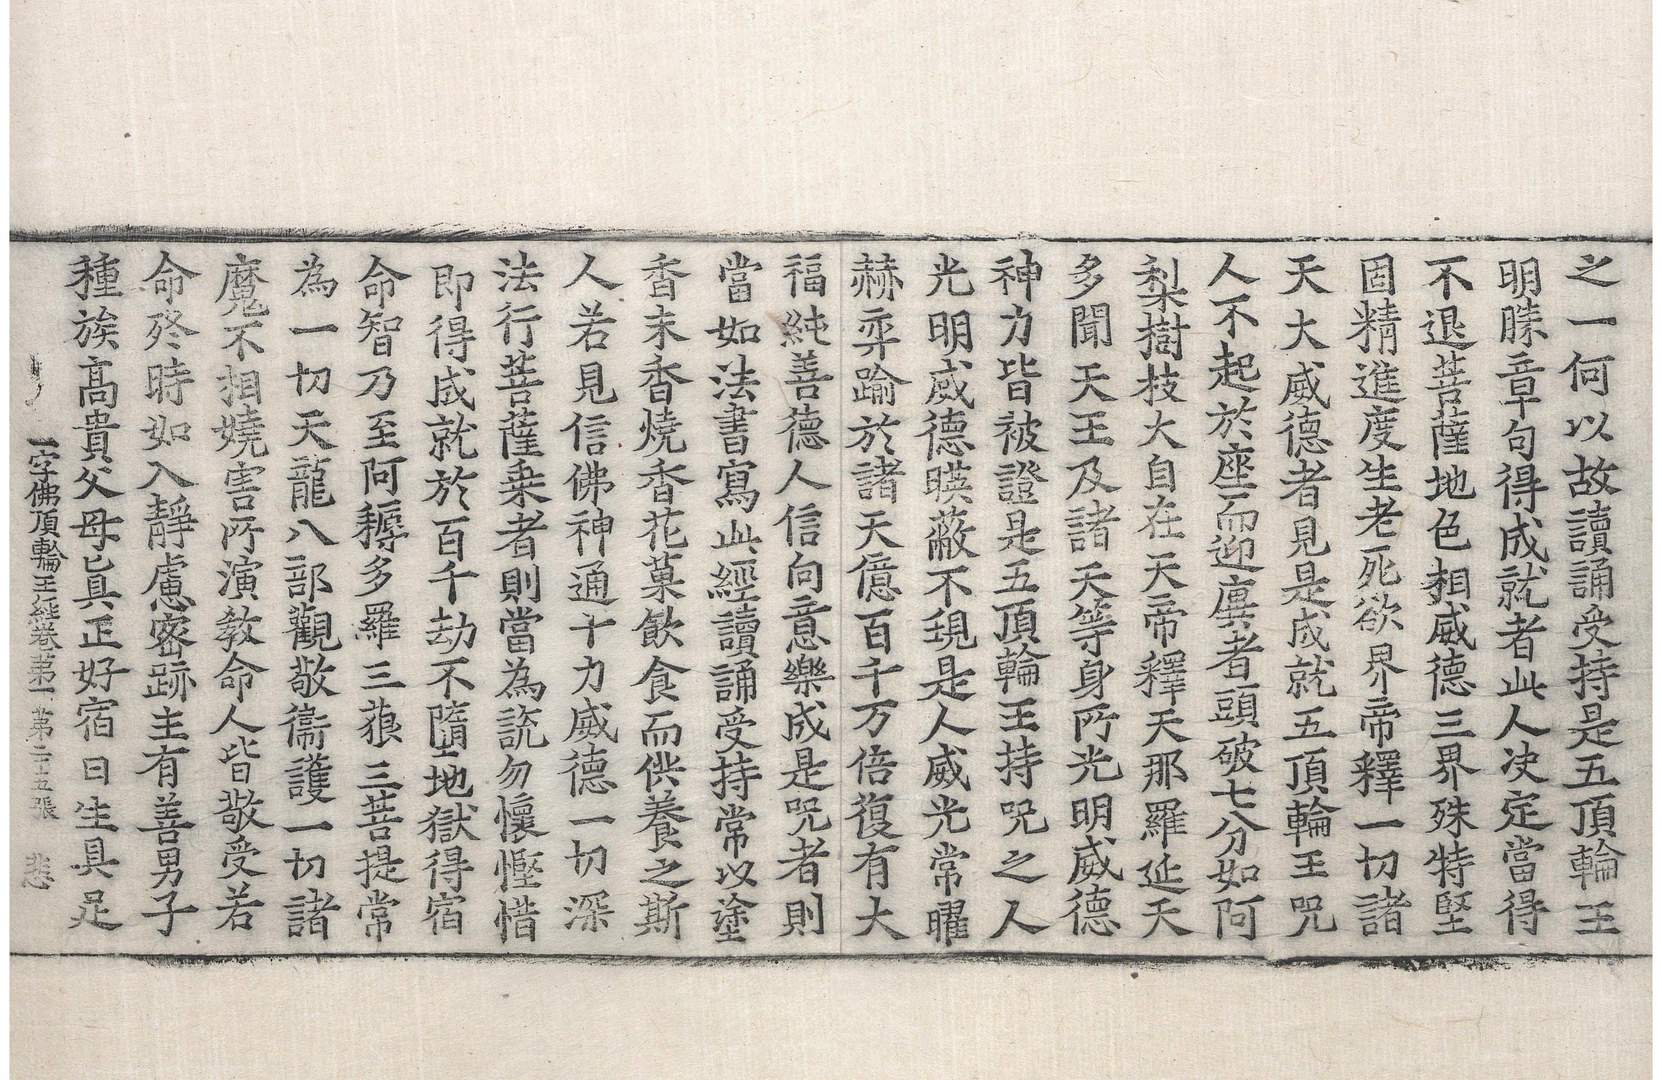 之一何以故讀誦受持是五頂輪王
明勝章句得成就者此人决定當得
不退菩薩地色相威德三界殊特堅
固精進度生老死欲界帝釋一切諸
天大威德者見是成就五頂輪王咒
人不起於座而迎虞者頭破七分如阿
梨樹枝大自在天帝釋天那羅延天
多聞天王及諸天等身所光明威德
神力皆被證是五頂輪王持咒之人
光明威德暎蔽不現是人威光常曜
赫弈踰於諸天億百千万倍復有大
福純善德人信向意樂成是咒者則
當如法書寫此經讀誦受持常以塗
香末香燒香花菓飲食而供養之斯
人若見信佛神通十力威德一切深
法行菩薩乗者則當為說勿懷慳惜
即得成就於百千劫不墮地獄得宿
命智乃至阿耨多羅三藐三菩提常
為一切天龍八部觀敬衞護一切諸
魔不相嬈害所演敎命人皆敬受若
命終時如入靜慮密跡主有善男子
種族髙貴父母皆具正好宿日生具足
一字佛頂輪王経卷第一 第二十五張 悲